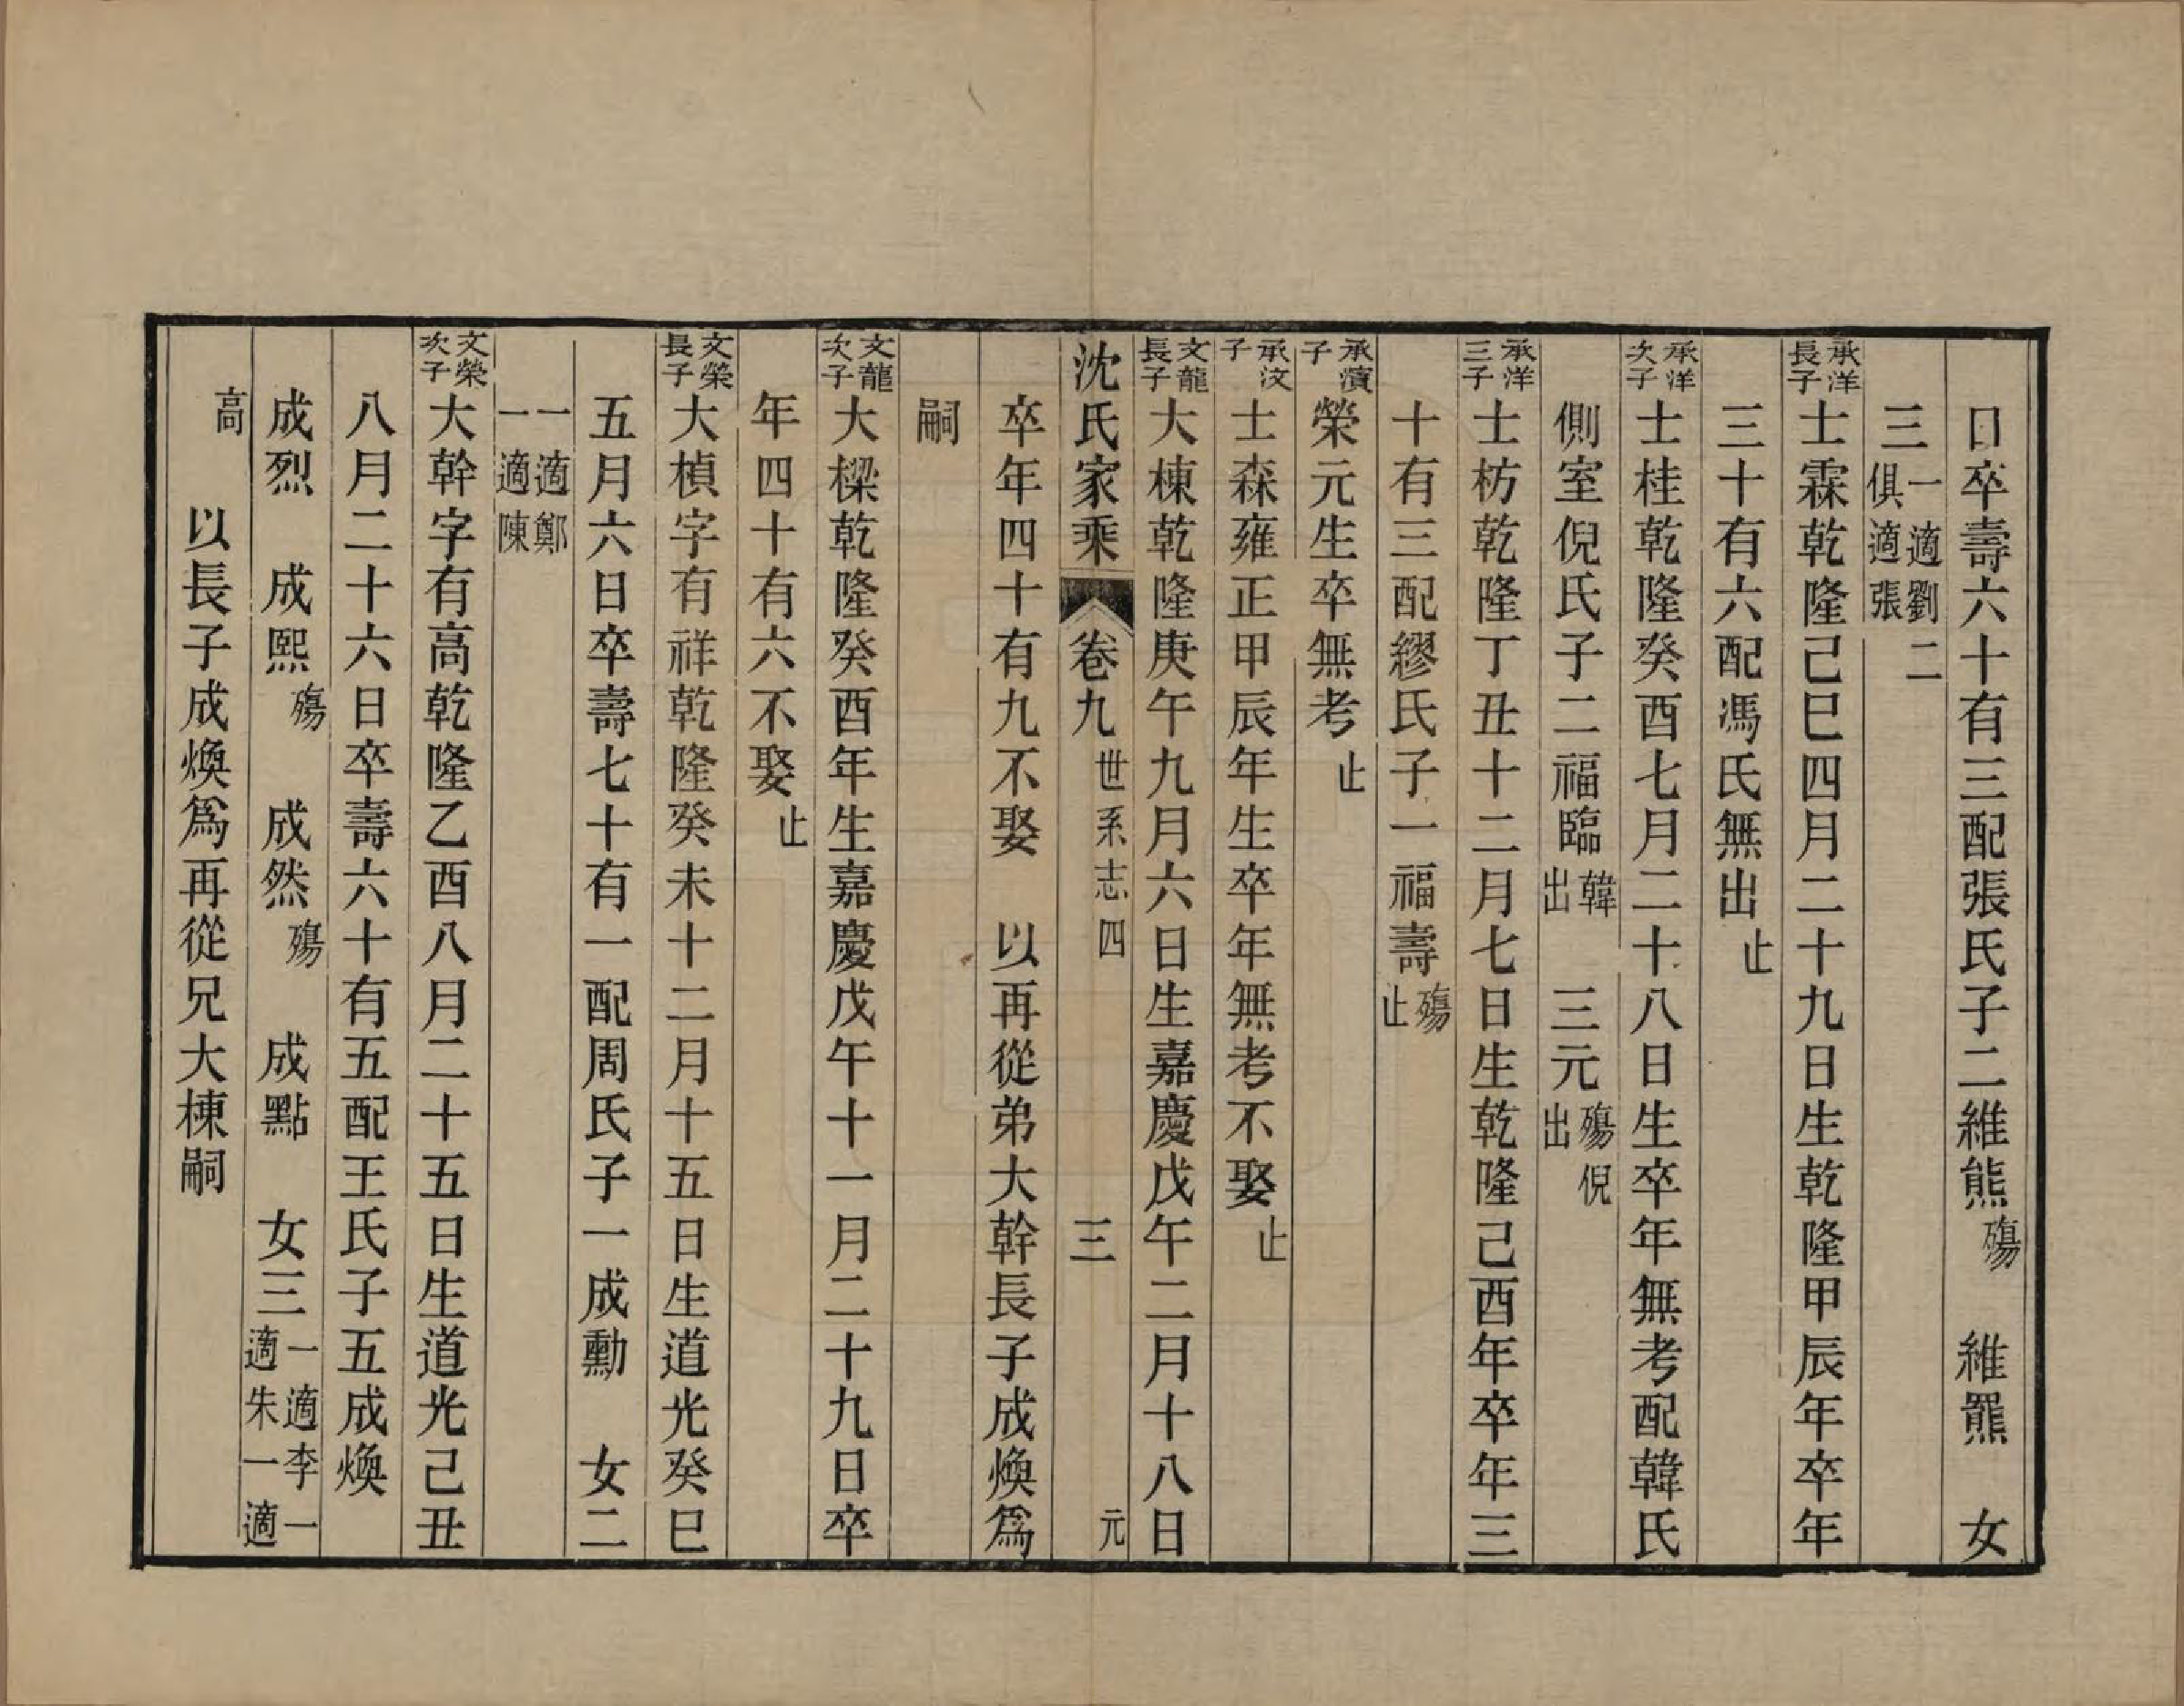 日卒壽六十有三配張氏子二維熊殤　維羆　女
三一適劉二俱適張
承洋長子士霖乾隆己巳四月二十九日生乾隆甲辰年卒年
三十有六配馮氏無出止
承洋次子士桂乾隆癸酉七月二十八日生卒年無考配韓氏
側室倪氏子二福臨韓出　三元殤倪出
承洋三子士枋乾隆丁丑十二月七日生乾隆己酉年卒年三
十有三配繆氏子一福壽殤止
承濱子榮元生卒無考止
承汶子士森雍正甲辰年生卒年無考不娶止
文龍長子大棟乾隆庚午九月六日生嘉慶戊午二月十八日
沈氏家乘　卷九　世系志四　三　元
卒年四十有九不娶　以再從弟大幹長子成煥爲
嗣
文龍次子大樑乾隆癸酉年生嘉慶戊午十一月二十九日卒
年四十有六不娶止
文榮長子大楨字有祥乾隆癸未十二月十五日生道光癸巳
五月六日卒壽七十有一配周氏子一成勳　女二
一適鄭一適陳
文榮次子大幹字有高乾隆乙酉八月二十五日生道光己丑
八月二十六日卒壽六十有五配王氏子五成煥
成烈　成熙殤　成然殤　成點　女三一適李一適朱一適
高　以長子成煥爲再從兄大棟嗣